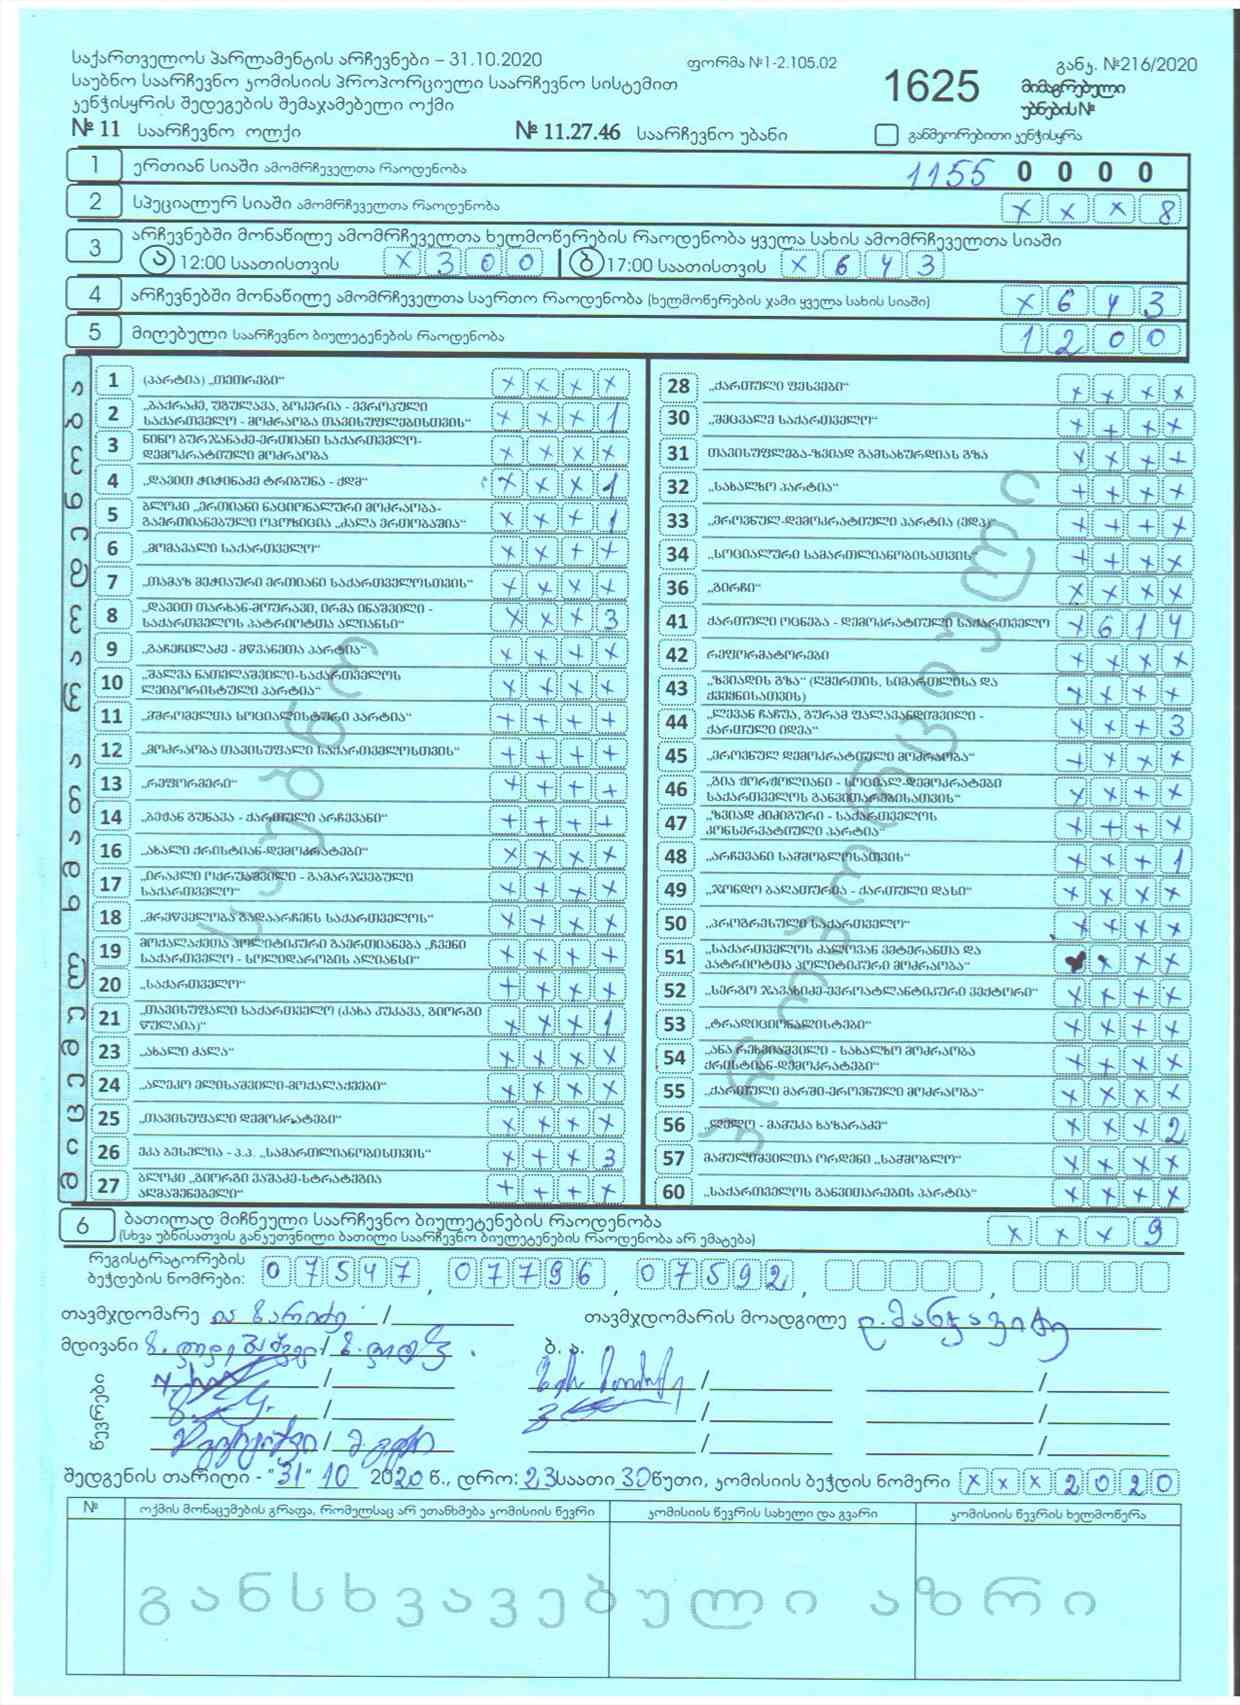 საქართველოს პარლამენტის არჩევნები – 31.10.2020
ფორმა №1-2.105.02
განკ. №216/2020
საუბნო საარჩევნო კომისიის პროპორციული საარჩევნო სისტემით
კენჭისყრის შედეგების შემაჯამებელი ოქმი
1625
მიმაგრებული
უბნების №
№ 11 საარჩევნო ოლქი
№ 11.27.46 საარჩევნო უბანი
განმეორებითი კენჭისყრა
1 ერთიან სიაში ამომრჩეველთა რაოდენობა 1155 0 0 0 0
2 სპეციალურ სიაში ამომრჩეველთა რაოდენობა x x x 8
3 არჩევნებში მონაწილე ამომრჩეველთა ხელმოწერების რაოდენობა ყველა სახის ამომრჩეველთა სიაში
ა 12:00 საათისთვის x 3 0 0 ბ 17:00 საათისთვის x 6 4 3
4 არჩევნებში მონაწილე ამომრჩეველთა საერთო რაოდენობა (ხელმოწერების ჯამი ყველა სახის სიაში) x 6 4 3
5 მიღებული საარჩევნო ბიულეტენების რაოდენობა 1 2 0 0
1 (პარტია) „თეთრები“ x x x x
2 „ბაქრაძე, უგულავა, ბოკერია - ევროპული
საქართველო - მოძრაობა თავისუფლებისთვის“ x x x 1
3 ნინო ბურჯანაძე-ერთიანი საქართველო-
დემოკრატიული მოძრაობა x x x x
4 „დავით ჭიჭინაძე ტრიბუნა - ქდმ“ x x x 1
5 ბლოკი „ერთიანი ნაციონალური მოძრაობა-
გაერთიანებული ოპოზიცია „ძალა ერთობაშია“ x x x 1
6 „მომავალი საქართველო“ x x x x
7 „თამაზ მეჭიაური ერთიანი საქართველოსთვის“ x x x x
8 „დავით თარხან-მოურავი, ირმა ინაშვილი -
საქართველოს პატრიოტთა ალიანსი“ x x x 3
9 „გაჩეჩილაძე - მწვანეთა პარტია“ x x x x
10 „შალვა ნათელაშვილი-საქართველოს
ლეიბორისტული პარტია“ x x x x
11 „მშრომელთა სოციალისტური პარტია“ x x x x
12 „მოძრაობა თავისუფალი საქართველოსთვის“ x x x x
13 „რეფორმერი“ x x x x
14 „ბექან გუნავა - ქართული არჩევანი“ x x x x
16 „ახალი ქრისტიან-დემოკრატები“ x x x x
17 „ირაკლი ოქრუაშვილი - გამარჯვებული
საქართველო“ x x x x
18 „მრეწველობა გადაარჩენს საქართველოს“ x x x x
19 მოქალაქეთა პოლიტიკური გაერთიანება „ჩვენი
საქართველო - სოლიდარობის ალიანსი“ x x x x
20 „საქართველო“ x x x x
21 „თავისუფალი საქართველო (კახა კუკავა, გიორგი
წულაია)“ x x x 1
23 „ახალი ძალა“ x x x x
24 „ალეკო ელისაშვილი-მოქალაქეები“ x x x x
25 „თავისუფალი დემოკრატები“ x x x x
26 ეკა ბესელია - პ.პ. „სამართლიანობისთვის“ x x x 3
27 ბლოკი „გიორგი ვაშაძე-სტრატეგია
აღმაშენებელი“ x x x x
28 „ქართული ფესვები“ x x x x
30 „შეცვალე საქართველო“ x x x x
31 თავისუფლება-ზვიად გამსახურდიას გზა x x x x
32 „სახალხო პარტია“ x x x x
33 „ეროვნულ-დემოკრატიული პარტია (ედპ)“ x x x x
34 „სოციალური სამართლიანობისათვის“ x x x x
36 „გირჩი“ x x x x
41 ქართული ოცნება - დემოკრატიული საქართველო x 6 1 4
42 რეფორმატორები x x x x
43 „ზვიადის გზა“ (ღმერთის, სიმართლისა და
ქვეყნისათვის) x x x x
44 „ლევან ჩაჩუა, გურამ ფალავანდიშვილი -
ქართული იდეა“ x x x 3
45 „ეროვნულ დემოკრატიული მოძრაობა“ x x x x
46 „გია ჟორჟოლიანი - სოციალ-დემოკრატები
საქართველოს განვითარებისათვის“ x x x x
47 „ზვიად ძიძიგური - საქართველოს
კონსერვატიული პარტია“ x x x x
48 „არჩევანი სამშობლოსათვის“ x x x 1
49 „ჯონდო ბაღათურია - ქართული დასი“ x x x x
50 „პროგრესული საქართველო“ x x x x
51 „საქართველოს ძალოვან ვეტერანთა და
პატრიოტთა პოლიტიკური მოძრაობა“ x x x
52 „სერგო ჯავახიძე-ევროატლანტიკური ვექტორი“ x x x x
53 „ტრადიციონალისტები“ x x x x
54 „ანა რეხვიაშვილი - სახალხო მოძრაობა
ქრისტიან-დემოკრატები“ x x x x
55 „ქართული მარში-ეროვნული მოძრაობა“ x x x x
56 „ლელო - მამუკა ხაზარაძე“ x x x 2
57 მამულიშვილთა ორდენი „სამშობლო“ x x x x
60 „საქართველოს განვითარების პარტია“ x x x x
საუბნო
პროპორციული
6 ბათილად მიჩნეული საარჩევნო ბიულეტენების რაოდენობა
(სხვა უბნისათვის განკუთვნილი ბათილი საარჩევნო ბიულეტენების რაოდენობა არ ემატება) x x x 9
რეგისტრატორების
ბეჭდების ნომრები: 07547, 07796, 07592,
თავმჯდომარე
თავმჯდომარის მოადგილე
მდივანი
ბ. ა.
წევრები
შედგენის თარიღი - "31" 10 2020 წ., დრო: 23 საათი 30 წუთი, კომისიის ბეჭდის ნომერი x x x 2 0 2 0
№ ოქმის მონაცემების გრაფა, რომელსაც არ ეთანხმება კომისიის წევრი
კომისიის წევრის სახელი და გვარი
კომისიის წევრის ხელმოწერა
განსხვავებული აზრი